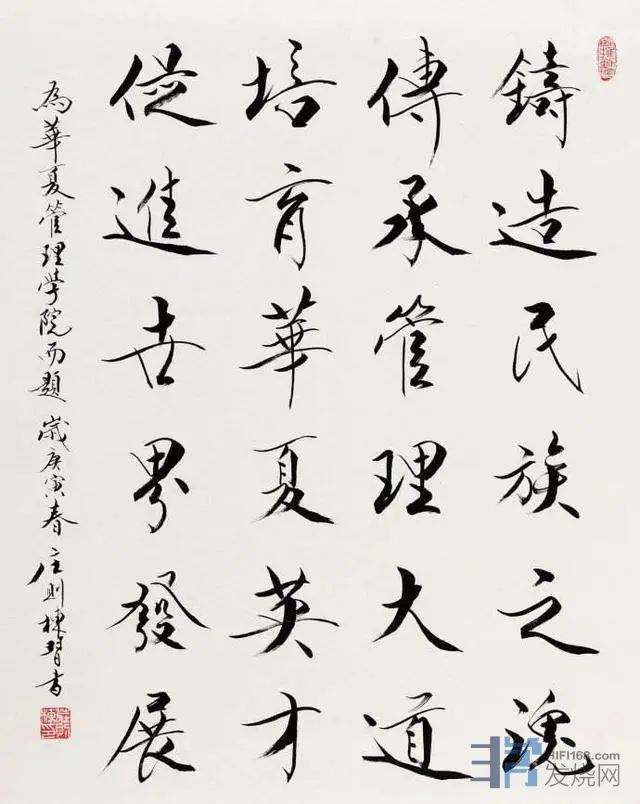 鑄造民族之魂
傳承管理大道
培育華夏英才
促進世界發展
為華夏管理學院而題 歲庚寅春 庄則棟習書
HIFI168.com
发烧网